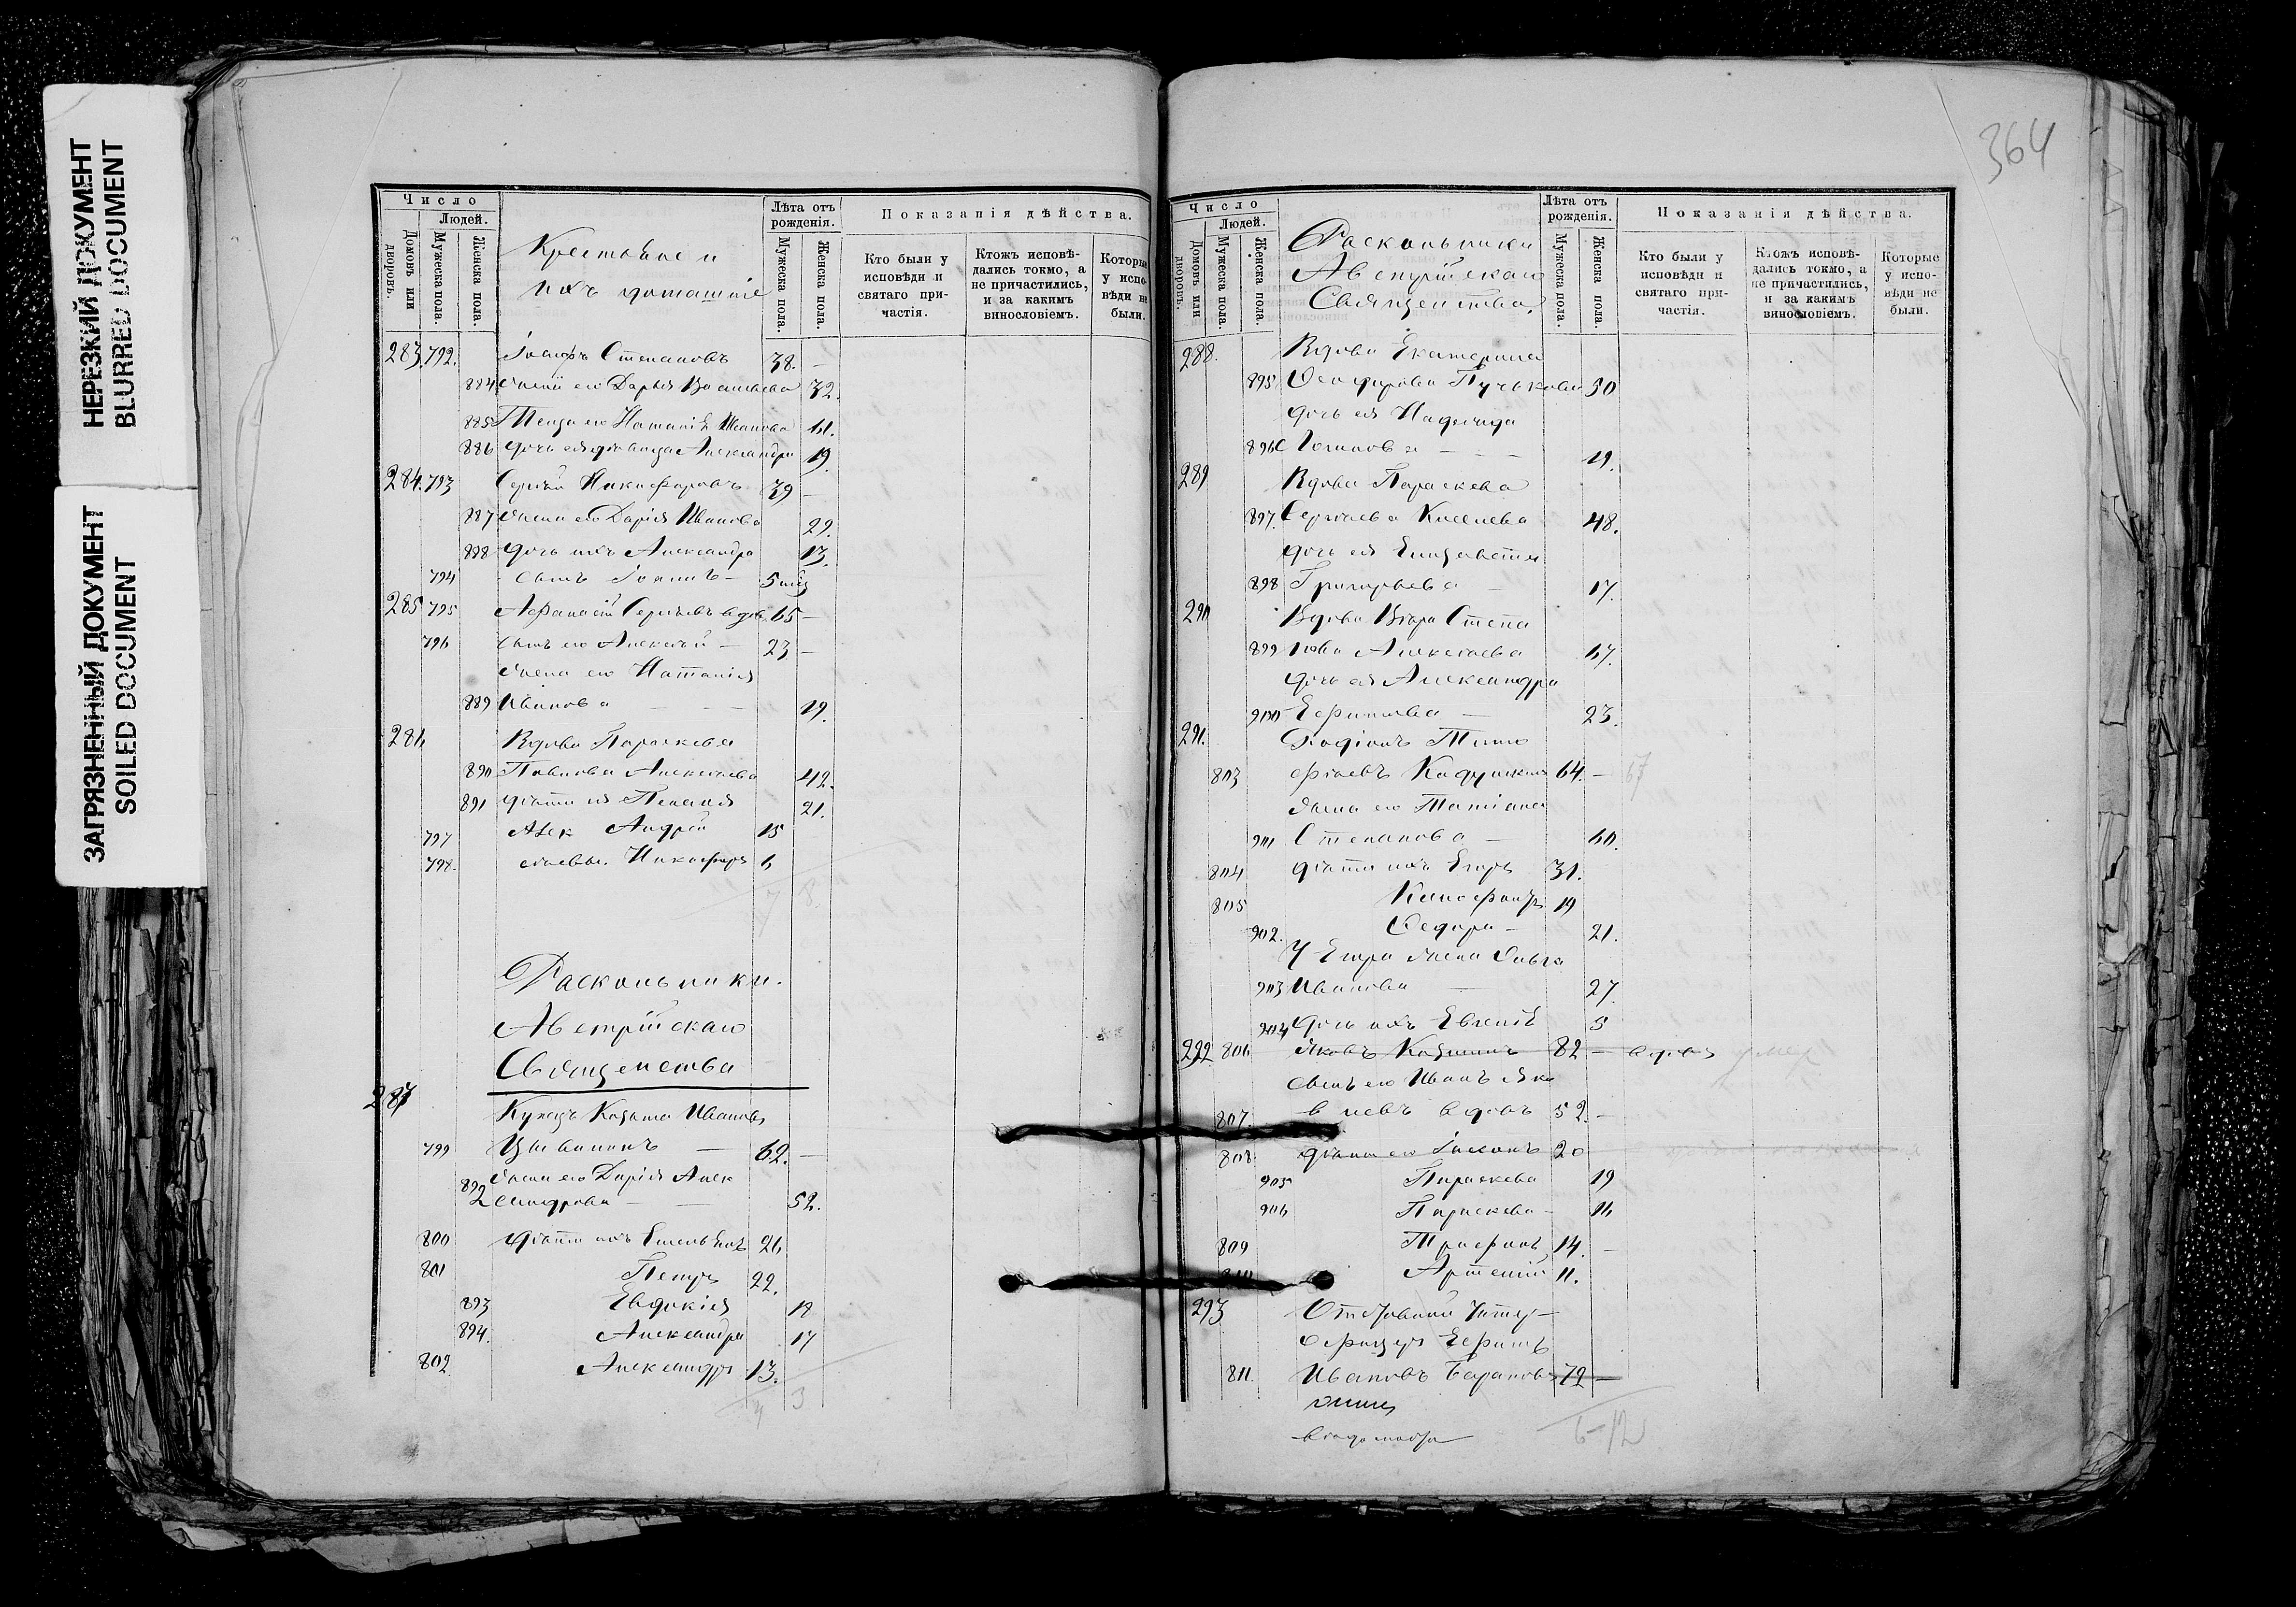 НЕРЕЗКИЙ ДОКУМЕНТ
BLURRED DOCUMENT
ЗАГРЯЗНЕННЫЙ ДОКУМЕНТ
SOILED DOCUMENT
Число
Людей.
Домовъ или дворовъ.
Мужеска пола.
Женска пола.
Крестьяне и
ихъ домашніе
Лѣта отъ рожденія.
Мужеска пола.
Женска пола.
Показанія дѣйства.
Кто были у исповѣди и святаго причастія.
Ктожъ исповѣдались токмо, а не причастились, и за какимъ винословіемъ.
Которые у исповѣди не были.
283. 792. Іосифъ Степановъ 38. –
884 жена его Дарья Васильева 32.
885 Теща его Наталія Иванова 61.
886 дочь ея дѣвица Александра 19
284. 793 Сергѣй Никифоровъ 39 –
887 жена его Дарія Иванова 29.
888 дочь ихъ Александра 13.
794 сынъ Іоаннъ – 5
285 795 Афанасій Сергѣевъ вдов. 65 –
796 сынъ его Алексѣй – 23 –
жена его Наталія
889 Иванова – – 19.
286 Вдова Параскева
890 Павлова Алексѣева 42.
891 дѣти ея Пелагія 21.
797 Алек Андрей 15
798. сѣевы. Никифоръ 6
7 8
Раскольники.
Австрійскаго
Священства
287 Купецъ Козьма Ивановъ
799 – 62. –
892 жена его Дарія Алек
сандрова – – 52.
800 дѣти ихъ Емельянъ 26
801 Петръ 22.
893 Евдокія 18
894. Александра 17
802. Александръ 13.
4 3
364
Число
Людей.
Домовъ или дворовъ.
Мужеска пола.
Женска пола.
Раскольники
Австрійскаго
Священства.
Лѣта отъ рожденія.
Мужеска пола.
Женска пола.
Показанія дѣйства.
Кто были у исповѣди и святаго причастія.
Ктожъ исповѣдались токмо, а не причастились, и за какимъ винословіемъ.
Которые у исповѣди не были.
288. Вдова Екатерина
895 Ѳеодорова Пучькова 50
дочь ея Надежда
896 – – – 19.
289 Вдова Параскева
897. Сергѣева Киселева 48.
дочь ея Елизавета
898 Григорьева – 17.
290 Вдова Вѣра Степа
899 нова Алексѣева 67.
дочь ея Александра
900 Ефимова – 23.
291. Родіонъ Тимо
803 фѣевъ 64. – 67
жена его Татіана
901 Степанова – 60.
804 дѣти ихъ Егоръ 31.
805 Ксенофонтъ 19
902. Ѳедора – 21.
У Егора жена Ольга
903 Иванова – 27.
904 дочь ихъ Евгенія 3
292 806 Яковъ 82 – вдовъ умер
сынъ его Иванъ Яко
807. влевъ вдовъ 52. –
808 дѣти его 20
905 Параскева 19
906 Параскева – 16
809 Трифонъ 14. –
810 Артемій 11.
293 Отставной Унтер-
офицеръ Ефимъ
811. Ивановъ Барановъ 72 –
6–12